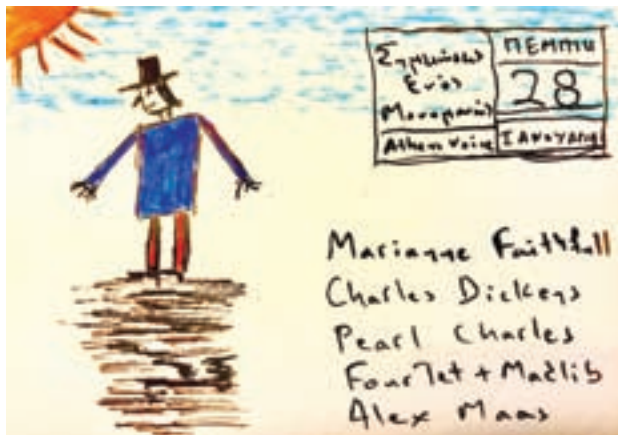 Σημειώσεις
Ενός
Μονομανούς
Athens Voice
ΠΕΜΠΤΗ
28
ΙΑΝΟΥΑΡΙΟΥ
Marianne Faithfull
Charles Dickens
Pearl Charles
Four Tet + Madlib
Alex Maas